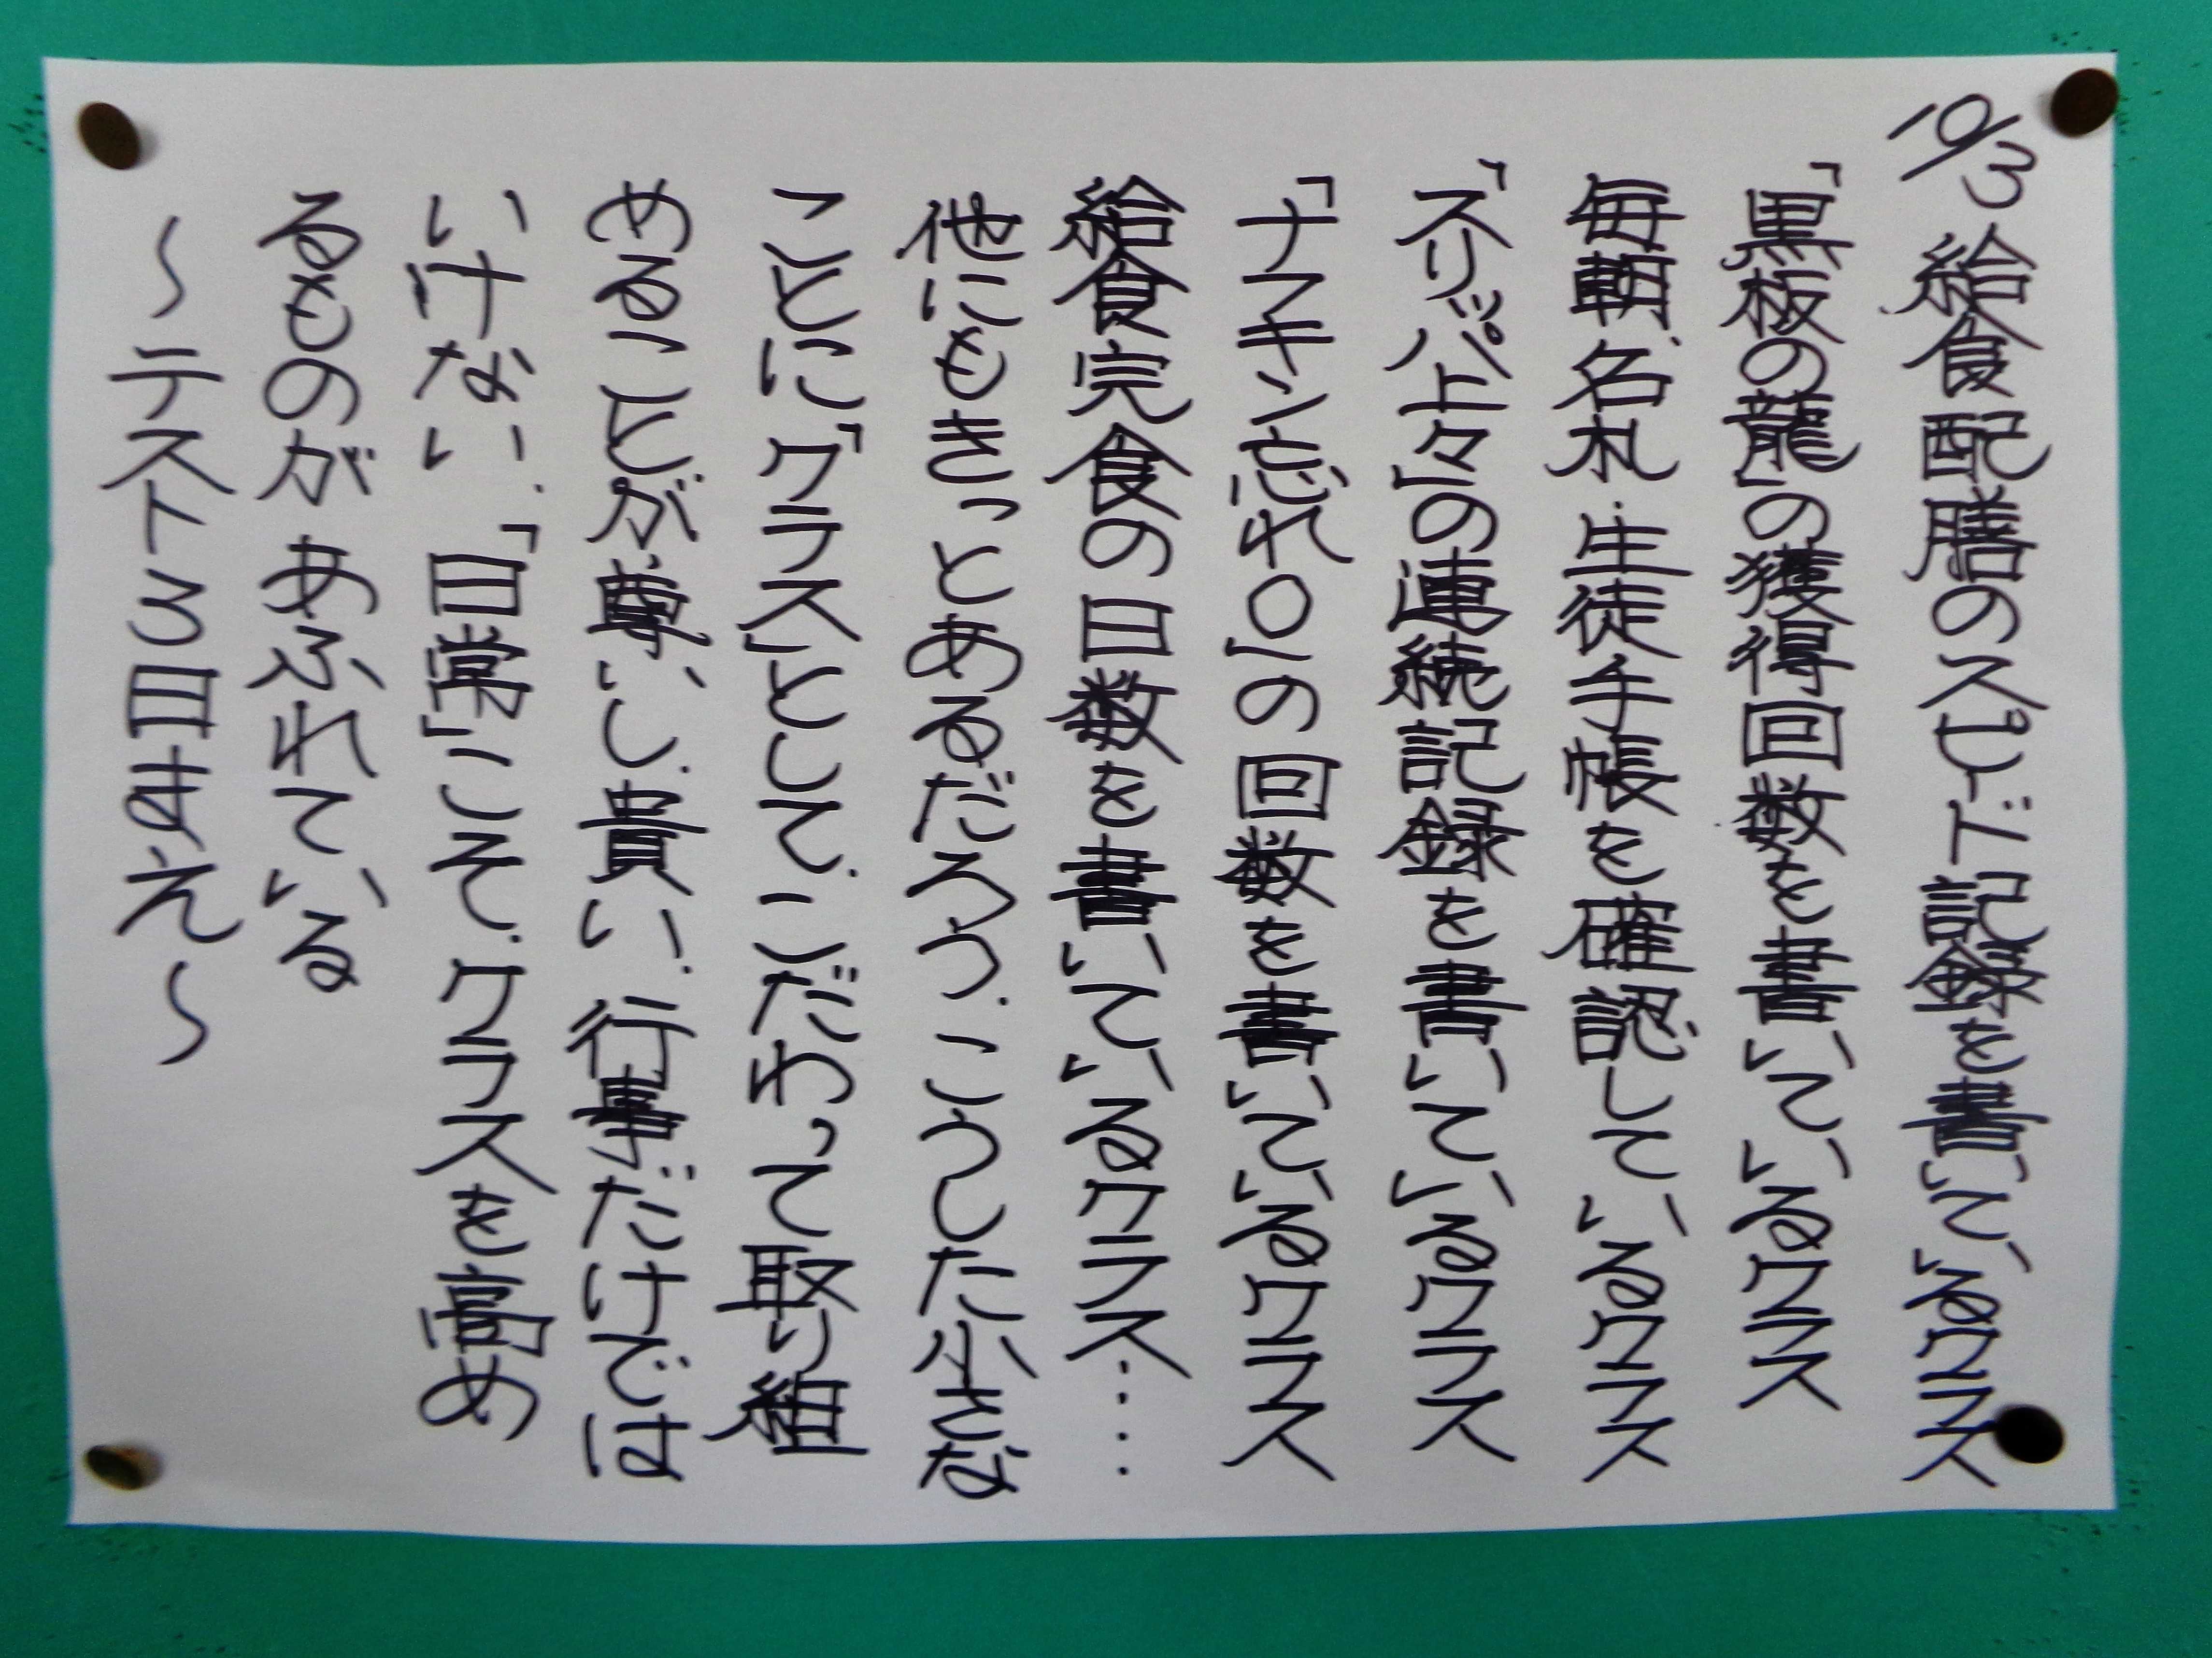 10/3 給食配膳のスピード記録を書いているクラス
「黒板の龍」の獲得回数を書いているクラス
毎朝、名札・生徒手帳を確認しているクラス
「スリッパ上々」の連続記録を書いているクラス
「ナフキン忘れ0」の回数を書いているクラス
給食完食の日数を書いているクラス……
他にもきっとあるだろう。こうした小さな
ことに「クラス」として、こだわって取り組
めることが、尊いし、貴い。行事だけでは
いけない。「日常」こそ、クラスを高め
るものが あふれている
～テスト3日まえ～